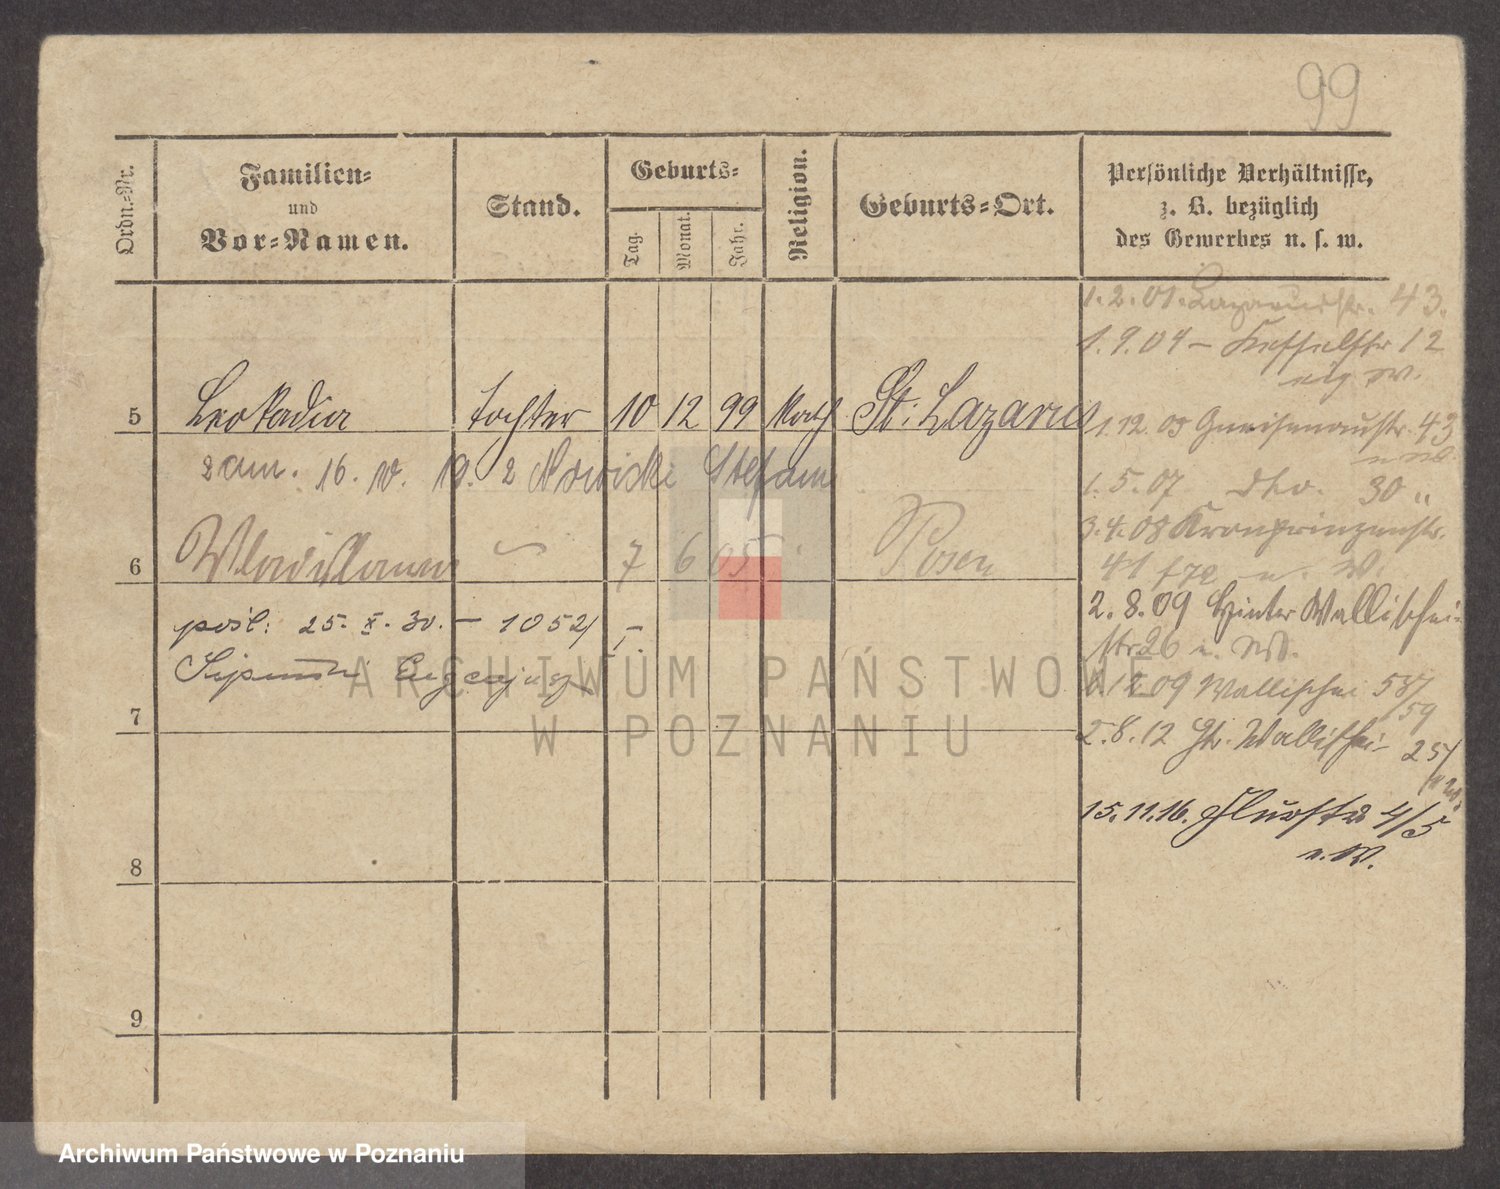 99
Ordn.-Nr.
Familien-
und
Vor-Namen.
Stand.
Geburts-
Tag.
Monat.
Jahr.
Religion.
Geburts-Ort.
Persönliche Verhältnisse,
z. B. bezüglich
des Gewerbes u. s. w.
1.2.01. Lazarusstr. 43.
1.9.04 – 12
5 Leokadia Tochter 10 12 99 Kath St. Lazarus
1.12.05 Gneisenaustr. 43
zam. 16. 19. 2 Nowicki Stefan
1.5.07 dto. 30 "
3.4.08 Kronprinzenstr.
6 Wladislawa 7 6 05 Posen
41
2.8.09 Hinter Wallischei-
str 26
pośl: 25. X. 30. – 1052/
09 Wallischei 58/
59
7
2.8.12 Gr. Wallischei- 25/
15.11.16. Flurstr 4/5
u. W.
8
9
ARCHIWUM PAŃSTWOWE
W POZNANIU
Archiwum Państwowe w Poznaniu